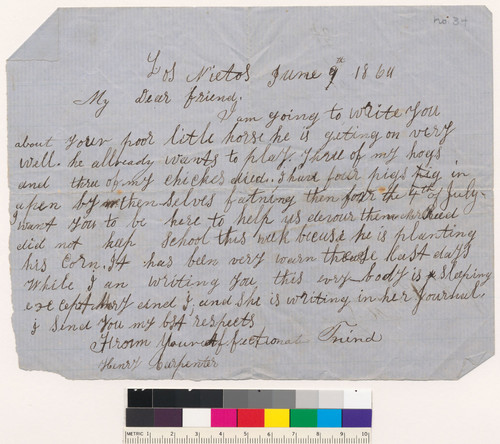 no. 34
Los Nietos June 9th 1864
My Dear friend.
I am going to write you
about your poor little horse he is geting on very
well. he allready wants to play. Three of my hogs
and three of my chicken died. I have four pigs in
a pen by themselves fatning them for the 4th of July.
I want you to be here to help us devour them. Mr Reed
did not keep School this week becuse he is planting
his corn. It has been very warm these last days
While I am writing you, this evry body is sleeping
except Mary and I, and she is writing in her Journal.
I send you my bst respects
From Your Affectionate Friend
Henry Carpenter
METRIC 1 2 3 4 5 6 7 8 9 10